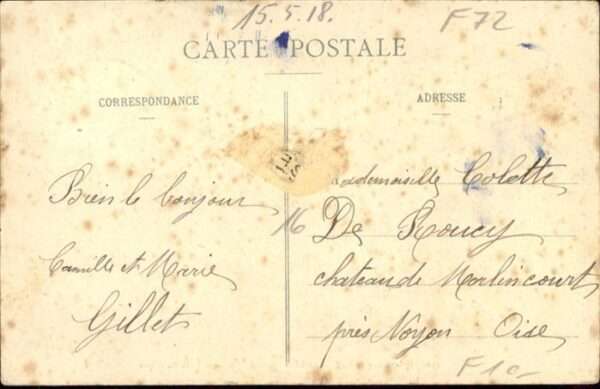 15.5.18.
F72
CARTE POSTALE
CORRESPONDANCE
ADRESSE
Bien le bonjour
Camille et Marie
Gillet
16
Mademoiselle Colette
De Roucy
chateau de Morlincourt
près Noyon Oise
F10-